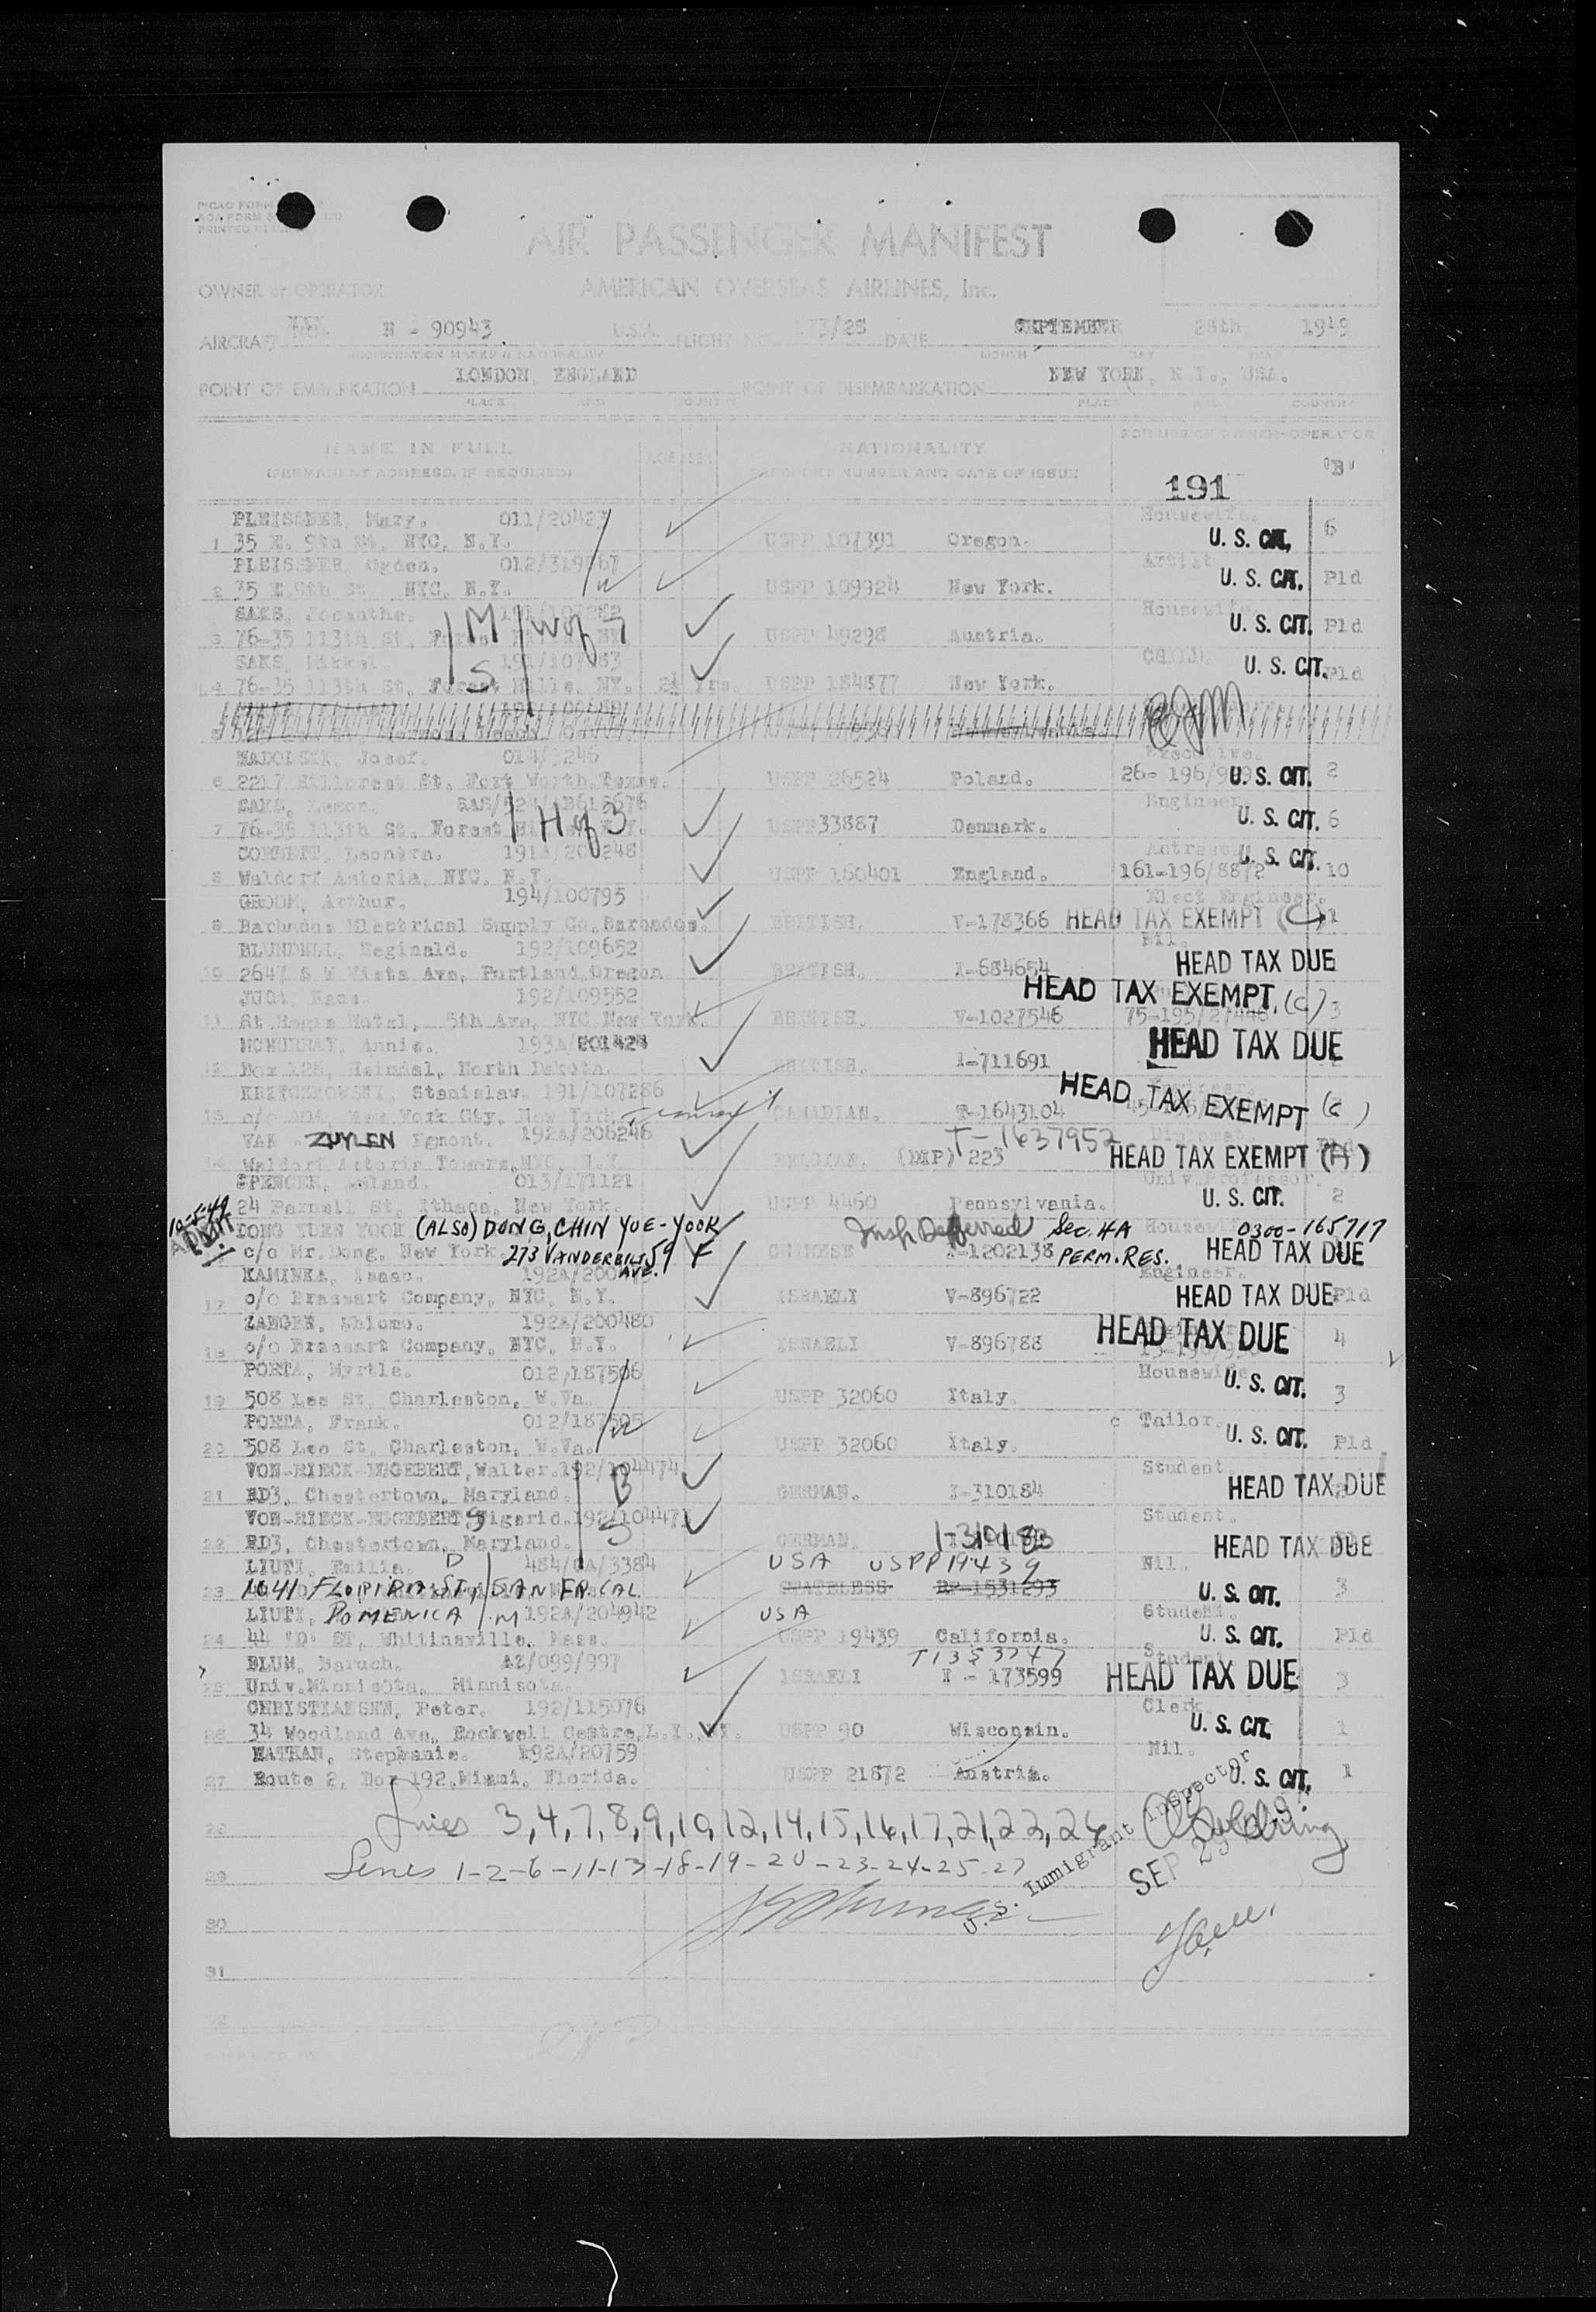 PICAO FORM
AIR PASSENGER MANIFEST
OWNER or OPERATOR AMERICAN OVERSEAS AIRLINES, Inc.
AIRCRAFT N - 90943 U.S.A. FLIGHT NO. 173/28 DATE SEPTEMBER 28th 1949
REGISTRATION MARKS & NATIONALITY MONTH DAY YEAR
POINT OF EMBARKATION LONDON, ENGLAND POINT OF DISEMBARKATION NEW YORK, N.Y., USA.
PLACE AND COUNTRY PLACE AND COUNTRY
NAME IN FULL AGE SEX NATIONALITY FOR USE OF OWNER-OPERATOR
(PERMANENT ADDRESS, IF REQUIRED) PASSPORT NUMBER AND DATE OF ISSUE "B"
191
PLEISSNER, Mary. 011/20423 Housewife.
1 35 E. 9th St, NYC, N.Y. USPP 107391 Oregon. U. S. CIT. 6
PLEISSNER, Ogden. 012/319867 Artist
2 35 E 9th St NYC, N.Y. W USPP 109924 New York. U. S. CIT. Pld
SAKS, 191/107282 Housewife.
3 76-35 113th St, Forest M W of 7 USPP 49298 Austria. U. S. CIT. Pld
SAKS, Mikkel. 191/107283 CHILD.
4 76-35 113th St, Forest Hills, NY. S 2½ Yrs. USPP 184877 New York. U. S. CIT. Pld
5
NADOLSKI, Josef. 014/3246 Executive.
6 2217 Hillcrest St, Fort Worth, Texas. USPP 26524 Poland. 26- 196/9 U. S. CIT. 2
SAKS, SAS/ Engineer
7 76-35 113th St, Forest H of 3 USPP 33887 Denmark. U. S. CIT. 6
CORBETT, Leonora. 191A/200248 Actress
8 Waldorf Astoria, NYC, N.Y. USPP 160401 England. 161-196/8872 U. S. CIT. 10
GROOM, Arthur. 194/100795 Elect Engineer.
9 Barbados Electrical Supply Co, Barbados. BRITISH. V-178366 HEAD TAX EXEMPT (C) 1
BLUNDELL, Reginald. 192/109652 Nil.
10 2647 S W Vista Ave, Portland, Oregon BRITISH. I-684654 HEAD TAX DUE
JUDA, Hans. 192/109552 HEAD TAX EXEMPT (C)
11 St. Regis Hotel, 5th Ave, NYC New York. BRITISH. V-1027546 3
MCMURRAY, Annie. 193A/201424 HEAD TAX DUE
12 Box 128, Heimdal, North Dakota. BRITISH. I-711691
KRZYCZKOWSKI, Stanislaw. 191/107286 HEAD TAX EXEMPT (C)
13 c/o AOA, New York City, New York. CANADIAN. T-1643104
VAN ZUYLEN Egmont. 192A/206246 T-1637952
14 Waldorf Astoria Towers, NYC, N.Y. BELGIAN. (DIP) 223 HEAD TAX EXEMPT (A)
SPENCER, Leland. 013/171121 Univ. Professor.
24 Parnell St, Ithaca, New York. USPP 4460 Pennsylvania. U. S. CIT. 2
10-5-49
DONG YUEN YOOK (ALSO) DONG, CHIN YUE-YOOK Insp Deferred Sec. 4A Housewife 0300-165717
c/o Mr. Dong, New York. 273 VANDERBILT AVE. 59 F CHINESE I-1202138 PERM. RES. HEAD TAX DUE
KAMINKA, Isaac. 192A/200 Engineer.
17 c/o Brassart Company, NYC, N.Y. ISRAELI V-896722 HEAD TAX DUE Pld
ZANGEN, Shlomo. 192A/200480
18 c/o Brassart Company, NYC, N.Y. ISRAELI V-896788 HEAD TAX DUE 4
PORTA, Myrtle. 012/187506 Housewife
19 508 Lee St, Charleston, W.Va. USPP 32060 Italy. U. S. CIT. 3
PORTA, Frank. 012/187505 c Tailor.
20 508 Lee St, Charleston, W.Va. W USPP 32060 Italy. U. S. CIT. Pld
VON-RIECK-EGGEBERT, Walter. 192/104474 Student
21 RD3, Chestertown, Maryland. B GERMAN. I-310184 HEAD TAX DUE
VON-RIECK-EGGEBERT, Sigarid. 192/104473 Student.
22 RD3, Chestertown, Maryland. S GERMAN. I-310183 HEAD TAX DUE
LIUTI, Emilia. D 484/GA/3384 USA USPP 19439 Nil.
23 1641 FLORIDA ST, SAN FR. CAL STATELESS RP-1531293 U. S. CIT. 3
LIUTI, DOMENICA M 192A/204942 USA Student.
24 44 "D" ST, Whitinsville, Mass. USPP 19439 California. U. S. CIT. Pld
BLUM, Baruch. AZ/099/997 T1353747 Student
25 Univ. Minnisota, Minnisota. ISRAELI I - 173599 HEAD TAX DUE 3
CHRISTIANSEN, Peter. 192/115076 Clerk.
26 34 Woodland Ave, Rockwell Centre, L.I., NY. USPP 90 Wisconsin. U. S. CIT. 1
NATHAN, Stephanie. 192A/20759 Nil.
27 Route 2, Box 192, Miami, Florida. USPP 21872 Austria. U. S. CIT. 1
28 Lines 3,4,7,8,9,10,12,14,15,16,17,21,22,26
29 Lines 1-2-6-11-13-18-19-20-23-24-25-27
U. S. Immigrant Inspector
SEP 29
30
31